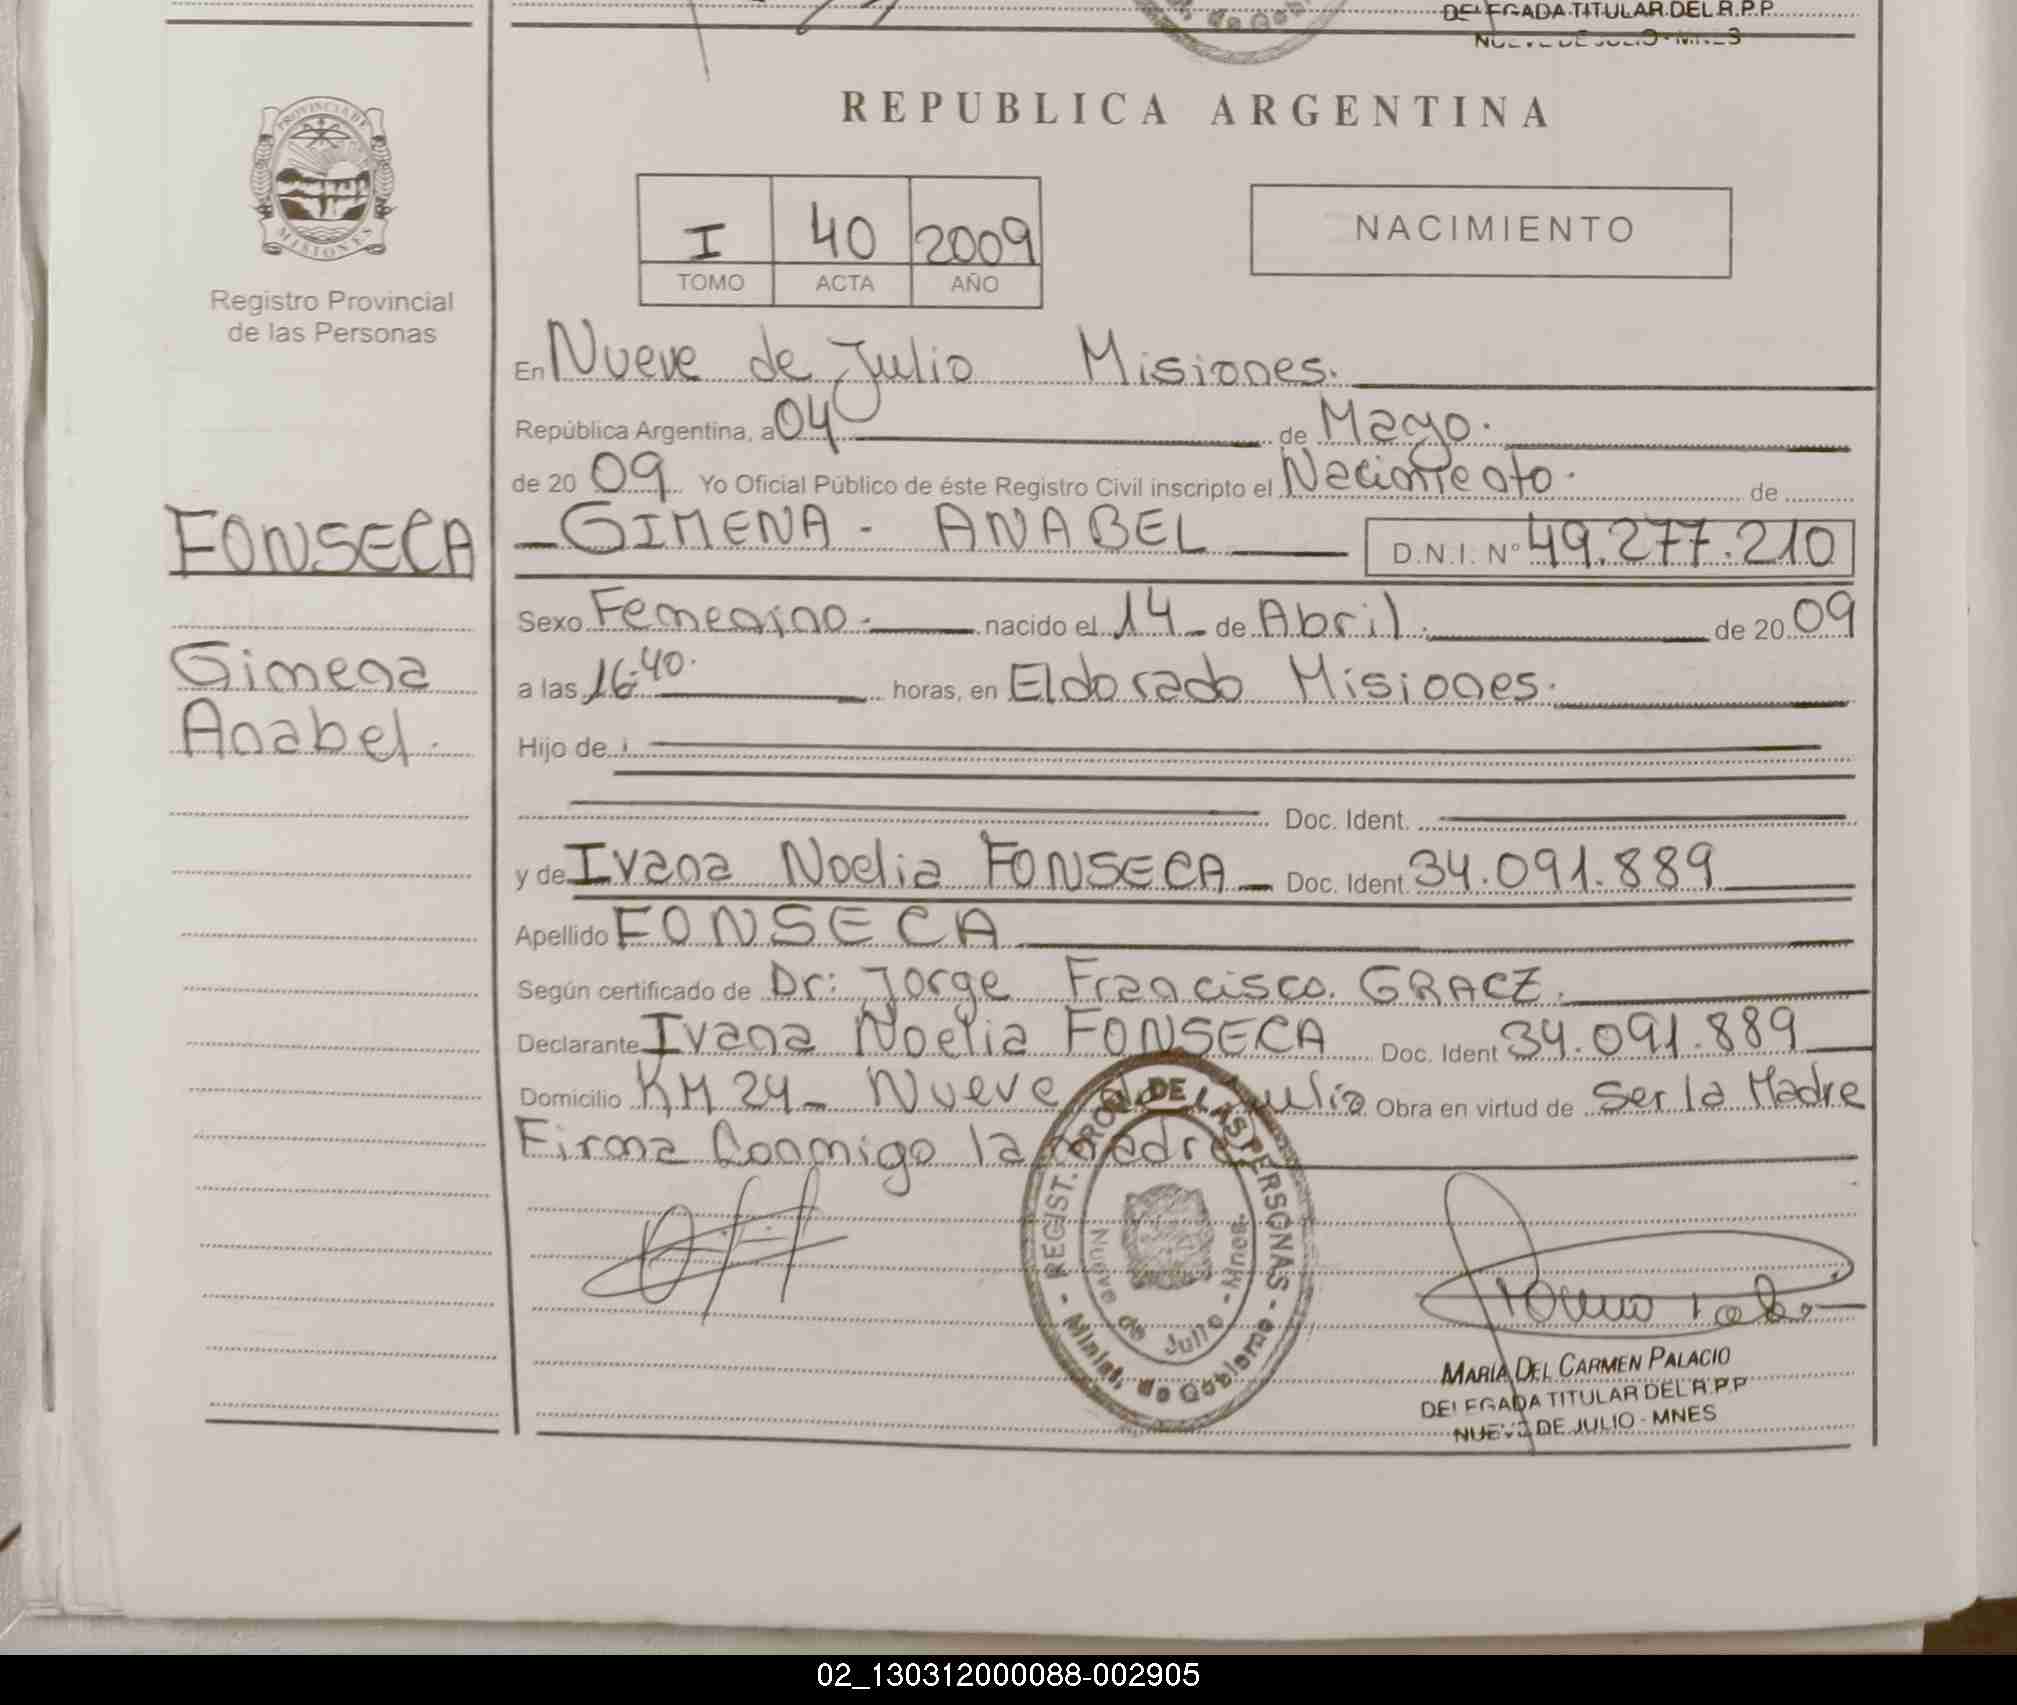 DELEGADA TITULAR DEL R.P.P
NUEVE DE JULIO - MNES
PROVINCIA DE
MISIONES
Registro Provincial
de las Personas
REPUBLICA ARGENTINA
I 40 2009
TOMO ACTA AÑO
NACIMIENTO
En Nueve de Julio Misiones.
República Argentina, a 04 de Mayo.
de 20 09 Yo Oficial Público de éste Registro Civil inscripto el Nacimiento. de
FONSECA
GIMENA - ANABEL D.N.I. Nº 49.277.210
Sexo Femenino. nacido el 14 de Abril. de 20 09
Gimena
a las 16:40. horas, en Eldorado Misiones.
Anabel.
Hijo de
Doc. Ident.
y de Ivana Noelia FONSECA Doc. Ident. 34.091.889
Apellido FONSECA
Según certificado de Dr: Jorge Francisco. GRACZ.
Declarante Ivana Noelia FONSECA Doc. Ident 34.091.889
Domicilio KM 24 - Nueve de Julio Obra en virtud de Ser la Madre
Firma Conmigo la madre
REGIST. PROV. DE LAS PERSONAS - Minist. de Gobierno -
Nueve de Julio - Mnes.
MARIA DEL CARMEN PALACIO
DELEGADA TITULAR DEL R.P.P
NUEVE DE JULIO - MNES
02_130312000088-002905